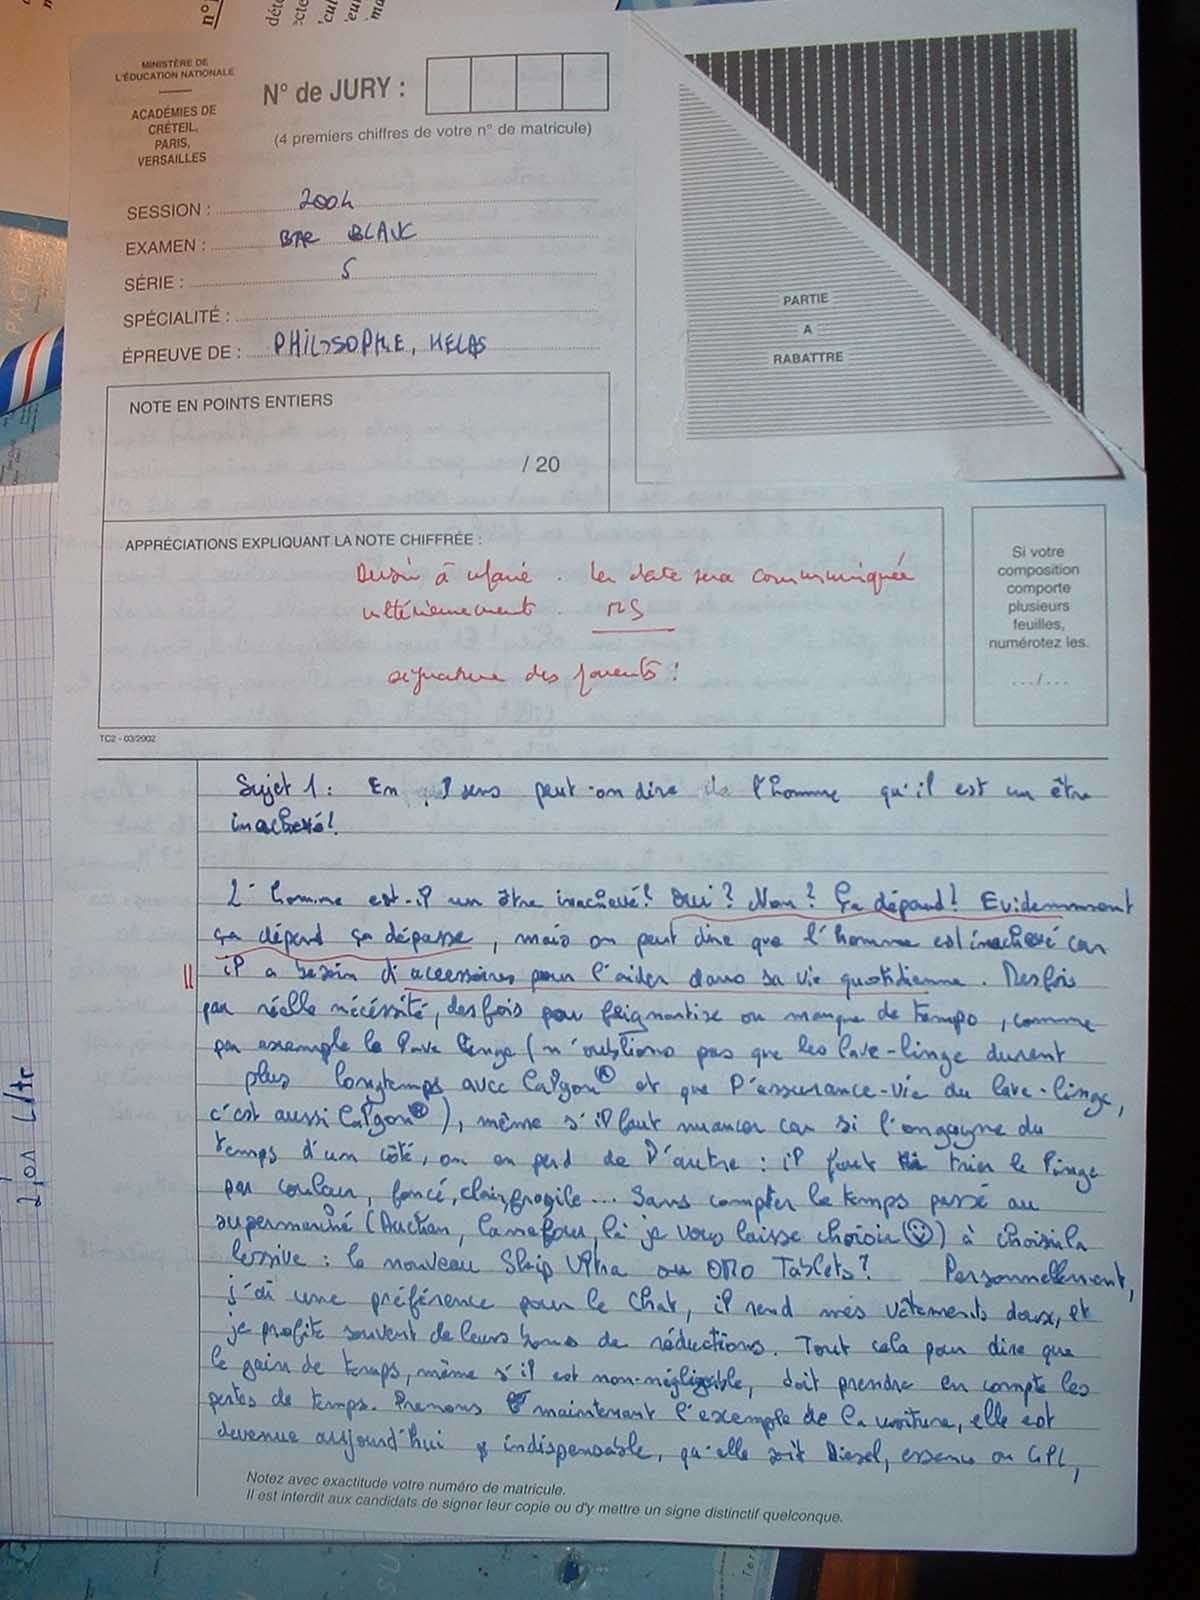 MINISTÈRE DE
L'ÉDUCATION NATIONALE
ACADÉMIES DE
CRÉTEIL,
PARIS,
VERSAILLES
N° de JURY :
(4 premiers chiffres de votre n° de matricule)
SESSION : 2004
EXAMEN : BAC BLANC
SÉRIE : S
SPÉCIALITÉ :
ÉPREUVE DE : PHILOSOPHIE, HELAS
PARTIE
A
RABATTRE
NOTE EN POINTS ENTIERS
/ 20
APPRÉCIATIONS EXPLIQUANT LA NOTE CHIFFRÉE :
Devoir à refaire. La date sera communiquée
ultérieurement. MS
signature des parents !
Si votre
composition
comporte
plusieurs
feuilles,
numérotez les.
.../...
TC2 - 03/2002
Sujet 1 : En sens peut-on dire de l'homme qu'il est un être
inachevé!
L'homme est-il un être inachevé? Oui? Non? Ça dépend! Evidemmment
ça dépend ça dépasse, mais on peut dire que l'homme est inachevé car
il a besoin d'accessoires pour l'aider dans sa vie quotidienne. Des fois
par réelle nécéssité, des fois pour feignantise ou manque de temps, comme
par exemple le lave linge (n'oublions pas que les lave-linge durent
plus longtemps avec Calgon® et que l'assurance-vie du lave-linge,
c'est aussi Calgon®), même s'il faut nuancer car si l'on gagne du
temps d'un côté, on en perd de l'autre : il faut trier le linge
par couleur, foncé, clair, fragile... Sans compter le temps passé au
supermarché (Auchan, Carrefour, là je vous laisse choisir ☺) à choisir la
lessive : le nouveau Skip Ultra ou OMO Tablets? Personnellement,
j'ai une préférence pour le Chat, il rend mes vêtements doux, et
je profite souvent de leurs bons de réductions. Tout cela pour dire que
le gain de temps, même s'il est non-négligeable, doit prendre en compte les
pertes de temps. Prenons maintenant l'exemple de la voiture, elle est
devenue aujourd'hui indispensable, qu'elle soit Diesel, essence ou GPL,
Notez avec exactitude votre numéro de matricule.
Il est interdit aux candidats de signer leur copie ou d'y mettre un signe distinctif quelconque.